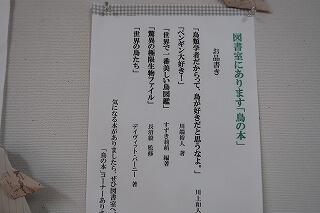 図書室にあります「鳥の本」
お品書き
「鳥類学者だからって、鳥が好きだと思うなよ。」
川上和人
「ペンギン大好き！」
川端裕人 著
「世界で一番美しい鳥図鑑」
すずき莉萌 編著
「驚異の極限生物ファイル」
長沼毅 監修
「世界の鳥たち」
デイヴィッド・バーニー 著
気になる本がありましたら、ぜひ図書室へ
「鳥の本」コーナーあり